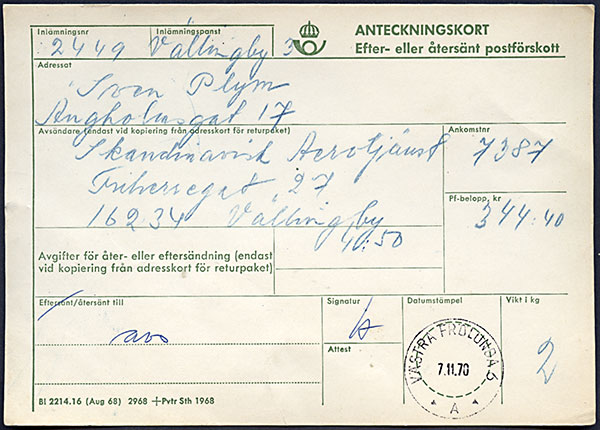 Inlämningsnr Inlämningspanst ANTECKNINGSKORT
2449 Vällingby 3 Efter- eller återsänt postförskott
Adressat
Sven Plym
Ängholmsgat 17
Avsändare (endast vid kopiering från adresskort för returpaket) Ankomstnr
Skandinavisk Aerotjänst 7387
Friherregat 27 Pf-belopp, kr
162 34 Vällingby 344:40
Avgifter för åter- eller eftersändning (endast
vid kopiering från adresskort för returpaket) 40:50
Eftersänt/återsänt till Signatur Datumstämpel Vikt i kg
avs 2
Attest
VÄSTRA FRÖLUNDA 3
7.11.70
A
Bl 2214.16 (Aug 68) 2968 Pvtr Sth 1968